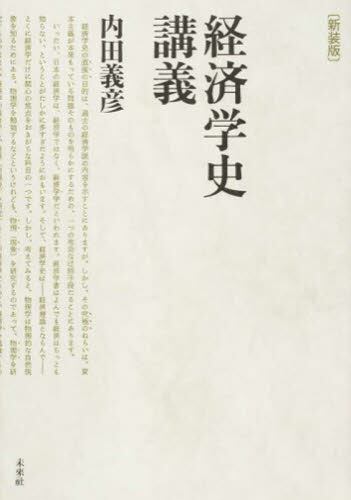 ［新装版］
経済学史
講義
内田義彦
経済学史の直接の目的は、過去の経済学説の内容を示すことにありますが、しかし、その究極のねらいは、資
本主義が本来もっている問題そのものを明らかにするための、一つの有効な迂回手段たることにあります。
いったい、日本の経済学は、経済学ではなく、経済学学だといわれます。経済学書はよんでも経済はちっとも
知らない、ということがたしかに多すぎたようにおもいます。そして、経済学史は――経済理論とならんで――
とくに経済学だけに関心の焦点をおきがちな科目の一つです。しかし、考えてみると、物理学は物理的な自然現
象を知るためにある。物理学を勉強するなどというけれども、物理（現象）を研究するのであって、物理学を研
未來社